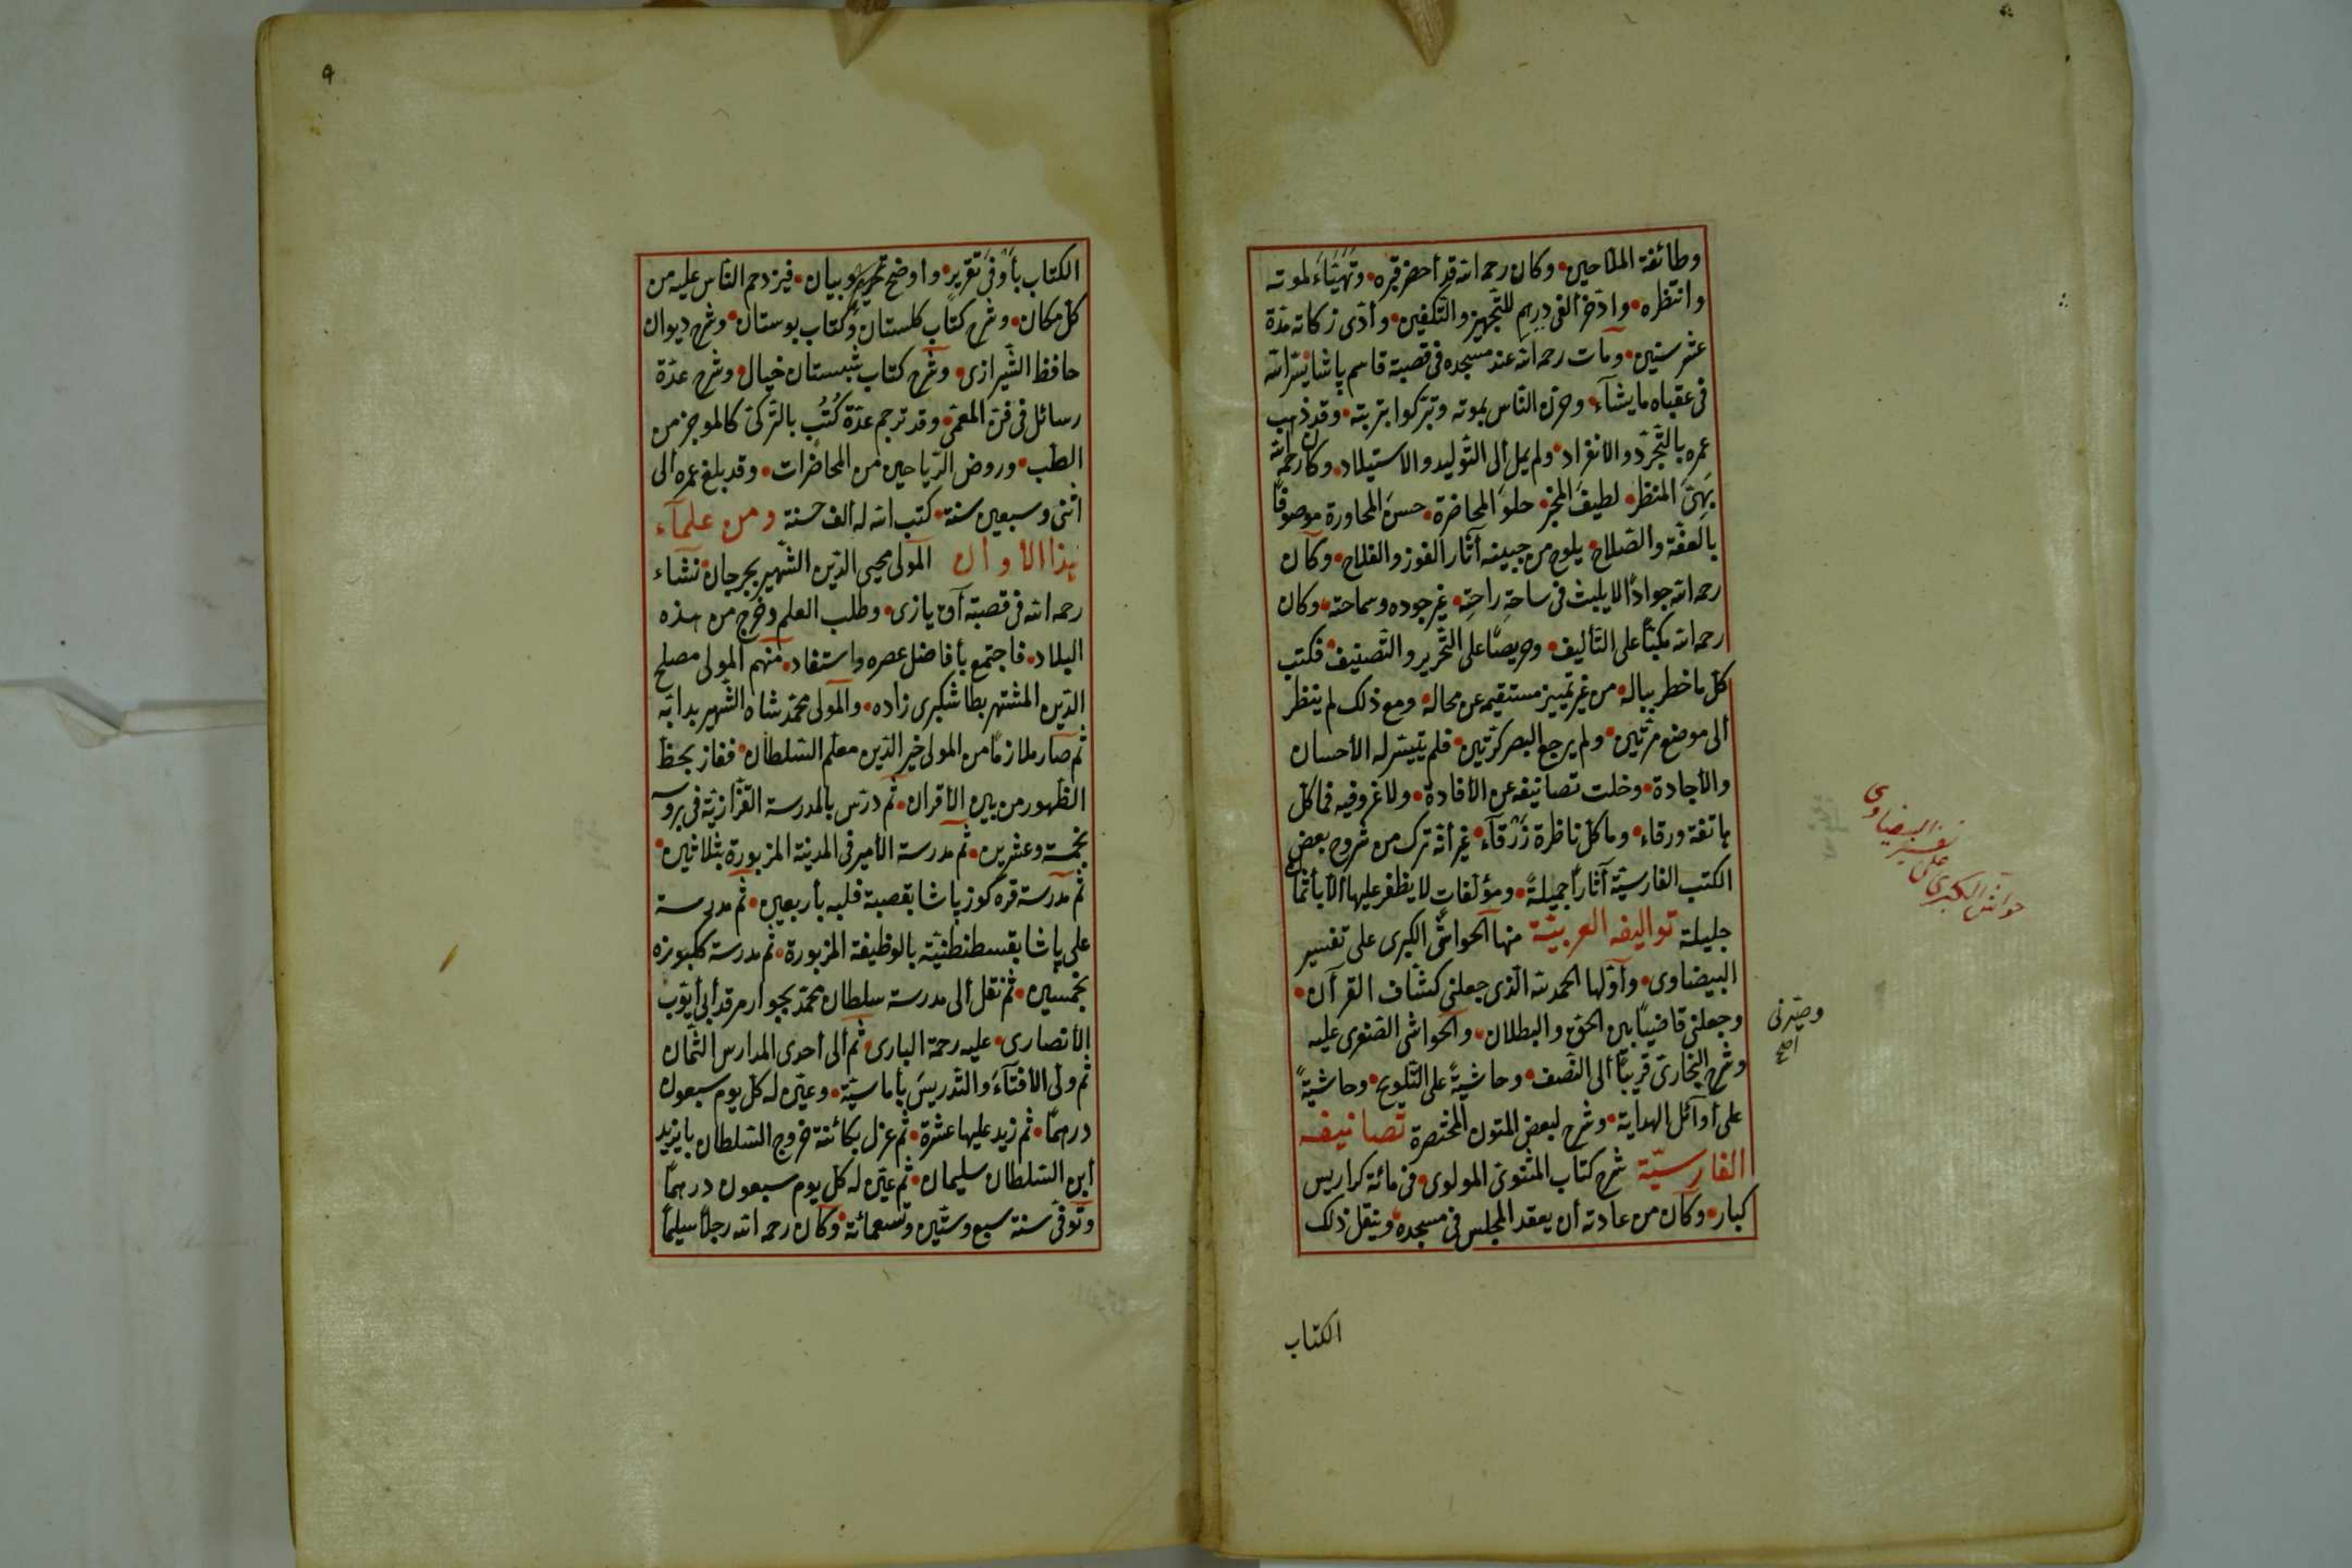 وطائفة الملاحين وكان رحمه الله قد أحضر قبره وتهيّأ لموته
وانتظره وادّخر ألفى درهم للتّجهيز والتّكفين وأدّى زكاته مدّة
عشر سنين ومات رحمه الله عند مسجده فى قصبة قاسم پاشا يسّر الله
فى عقباه ما يشآء وحزن النّاس بموته وتبرّكوا بتربته وقد ذهب
عمره بالتّجرّد والانفراد ولم يمل ألى التّوليد والاستيلاد وكان رحمه الله
بهىّ المنظر لطيف المخبر حلو المحاضرة حسن المحاورة موصوفًا
بالعفّة والصّلاح يلوح من جبينه آثار الفوز والفلاح وكان
رحمه الله جوادًا لا يلبث فى ساحة راحته غير جوده وسماحته وكان
رحمه الله مكبّا على التّأليف وحريصًا على التّحرير والتّصنيف فكتب
كلّ ما خطر بباله من غير تمييز مستقيمه عن محاله ومع ذلك لم ينظر
ألى موضع مرّتين ولم يرجع البصر كرّتين فلم يتيسّر له الأحسان
والأجادة وخلت تصانيفه عن الأفادة ولا غرو فيه فما كلّ
هاتفة ورقاء وما كلّ ناظرة زرقآء غير أنّه ترك من شروح بعض
الكتب الفارسيّة آثارًا جميلةً ومؤلّفات لا يظفر عليها ألا بأثمان
جليلة تواليفه العربيّة منها الحواشى الكبرى على تفسير
البيضاوى وأوّلها الحمد لله الّذى جعلنى كشّاف القرآن
وجعلنى قاضيًا بين الحق والبطلان والحواشى الصّغرى عليه
وشرح البخارى قريبًا ألى النّصف وحاشيةً على التّلويح وحاشيةً
على أوآئل الهداية وشرح لبعض المتون المختصرة تصانيفه
الفارسيّة شرح كتاب المثنوى المولوى فى مائة كراريس
كبار وكان من عادته أن يعقد المجلس فى مسجده وينقل ذلك
الكتاب
حواشى الكبرى على تفسير البيضاوى
وصيّرنى
اصح
٩
الكتاب بأوفى تقرير وأوضح تحرير وبيان فيزدحم النّاس عليه من
كلّ مكان وشرح كتاب كلستان وكتاب بوستان وشرح ديوان
حافظ الشّيرازى وشرح كتاب شبستان خيال وشرح عدّة
رسائل فى فنّ المعمّى وقد ترجم عدّة كُتُب بالتّركى كالموجز من
الطّب وروض الرّياحين من المحاضرات وقد بلغ عمره ألى
اثنى وسبعين سنة كتب الله له ألف حسنة ومن علمآء
هذا الأوان المولى محيى الدّين الشّهير بجرجان نشاء
رحمه الله فى قصبة آق يازى وطلب العلم وخرج من هذه
البلاد فاجتمع بأفاضل عصره واستفاد منهم المولى مصلح
الدّين المشتهر بطاشكبرى زاده والمولى محمّد شاه الشّهير بدايه
ثم صار ملازمًا من المولى خير الدّين معلّم السّلطان ففاز بحظّ
الظّهور من بين الأقران ثم درّس بالمدرسة القزّازيّة فى بروسه
بخمسة وعشرين ثم مدرسة الأمير فى المدينة المزبورة بثلاثين
ثم مدرسة قره كوز پاشا بقصبة فلبه بأربعين ثم مدرسة
على پاشا بقسطنطنيّة بالوظيفة المزبورة ثم مدرسة ككبوزه
بخمسين ثم نقل ألى مدرسة سلطان محمّد بجوار مرقد أبى أيّوب
الأنصارى عليه رحمة البارى ثم ألى أحدى المدارس الثّمان
ثم ولّى الأفتآء والتّدريس بأماسيّة وعيّن له كلّ يوم سبعون
درهمًا ثم زيد عليها عشرة ثم عزل بكائنة خروج السّلطان بايزيد
أبن السّلطان سليمان ثم عيّن له كلّ يوم سبعون درهمًا
وتوفّى سنة سبع وستّين وتسعمائة وكان رحمه الله رجلًا سليمًا